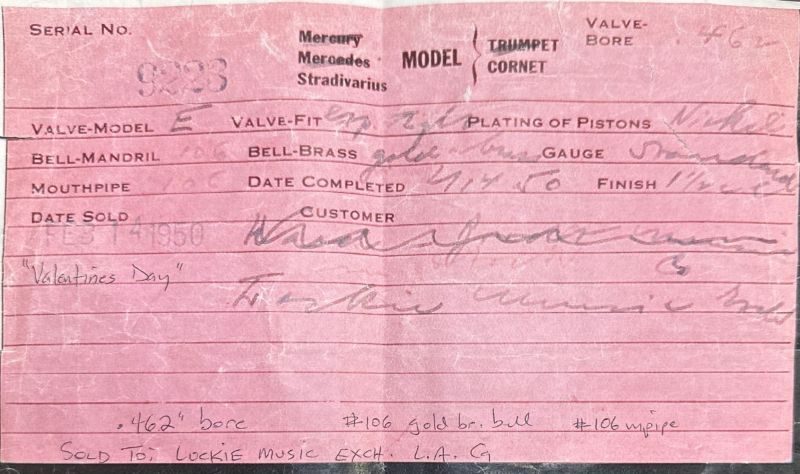 SERIAL NO. 9223
Mercury
Mercedes
Stradivarius
MODEL
TRUMPET
CORNET
VALVE-BORE .462
VALVE-MODEL E VALVE-FIT PLATING OF PISTONS Nickel
BELL-MANDRIL 106 BELL-BRASS gold brass GAUGE Standard
MOUTHPIPE 106 DATE COMPLETED 2/14 50 FINISH
DATE SOLD CUSTOMER
FEB 14 1950
Music
Co
"Valentines Day"
Lockie Music
.462" bore #106 gold br. bell #106 mpipe
SOLD TO: LOCKIE MUSIC EXCH. L.A. CA